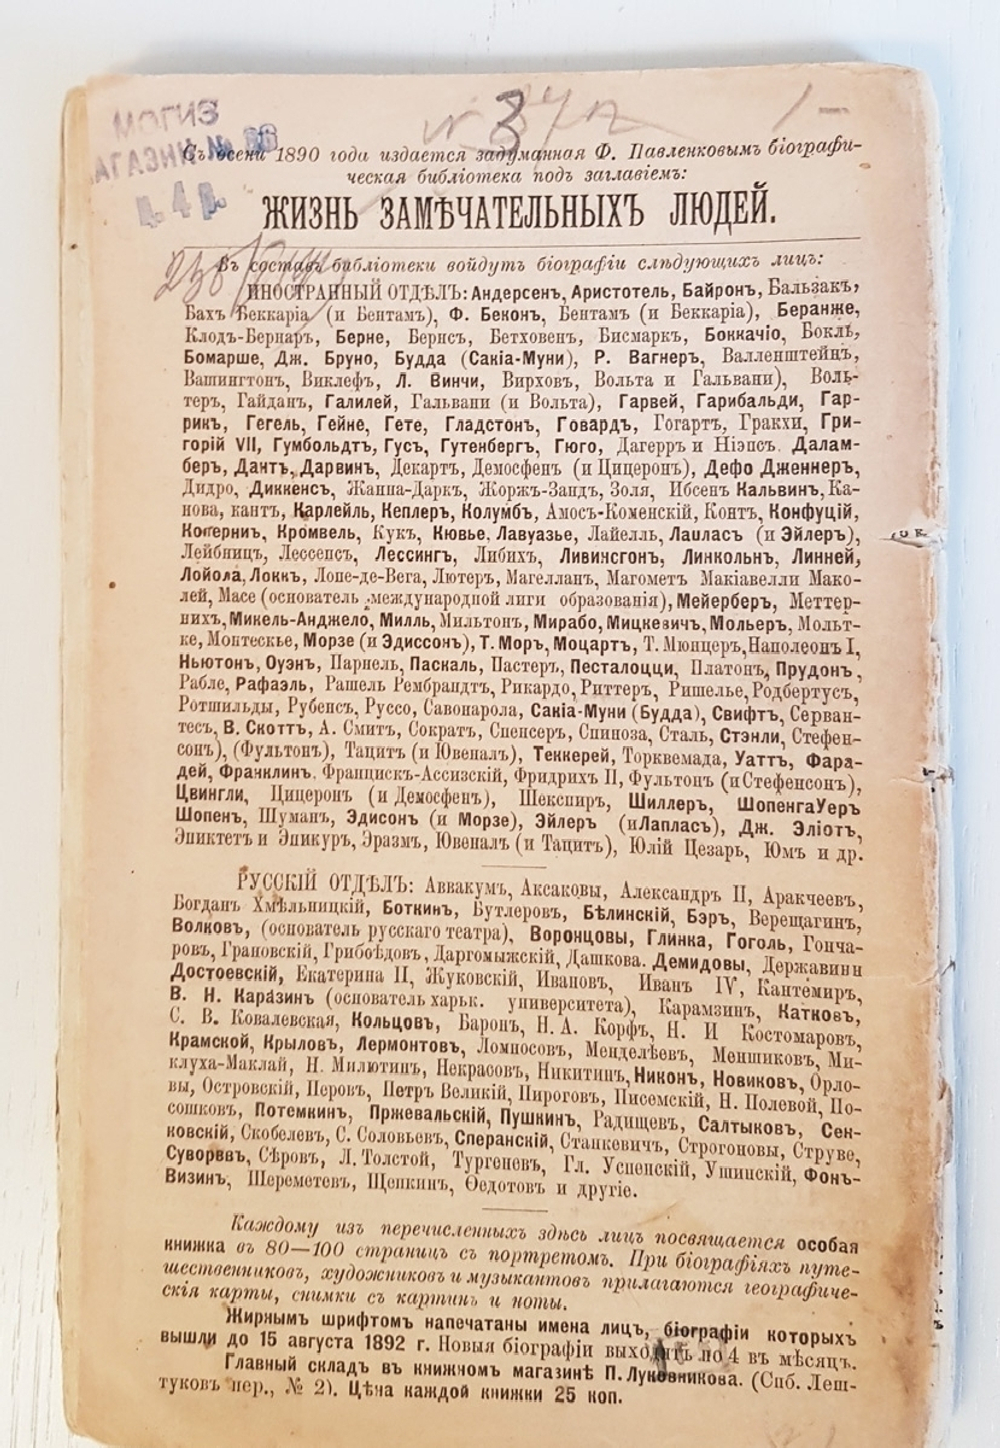 МОГИЗ
АГАЗИН №
ц. 4 р.
Съ осени 1890 года издается задуманная Ф. Павленковымъ біографи-
ческая библіотека подъ заглавіемъ:
ЖИЗНЬ ЗАМѢЧАТЕЛЬНЫХЪ ЛЮДЕЙ.
Въ составъ библіотеки войдутъ біографіи слѣдующихъ лицъ:
ИНОСТРАННЫЙ ОТДѢЛЪ: Андерсенъ, Аристотель, Байронъ, Бальзакъ,
Бахъ Беккаріа (и Бентамъ), Ф. Беконъ, Бентамъ (и Беккаріа), Беранже,
Клодъ-Бернаръ, Берне, Бернсъ, Бетховенъ, Бисмаркъ, Боккачіо, Бокль,
Бомарше, Дж. Бруно, Будда (Сакіа-Муни), Р. Вагнеръ, Валленштейнъ,
Вашингтонъ, Виклефъ, Л. Винчи, Вирховъ, Вольта и Гальвани), Воль-
теръ, Гайданъ, Галилей, Гальвани (и Вольта), Гарвей, Гарибальди, Гар-
рикъ, Гегель, Гейне, Гете, Гладстонъ, Говардъ, Гогартъ, Гракхи, Гри-
горій VII, Гумбольдтъ, Гусъ, Гутенбергъ, Гюго, Дагерръ и Ніэпсъ. Далам-
беръ, Дантъ, Дарвинъ, Декартъ, Демосфенъ (и Цицеронъ), Дефо Дженнеръ,
Дидро, Диккенсъ, Жанна-Даркъ, Жоржъ-Зандъ, Золя, Ибсенъ Кальвинъ, Ка-
нова, кантъ, Карлейль, Кеплеръ, Колумбъ, Амосъ-Коменскій, Контъ, Конфуцій,
Коперникъ, Кромвель, Кукъ, Кювье, Лавуазье, Лайелль, Лапласъ (и Эйлеръ),
Лейбницъ, Лессепсъ, Лессингъ, Либихъ, Ливингсгонъ, Линкольнъ, Линней,
Лойола, Локкъ, Лопе-де-Вега, Лютеръ, Магелланъ, Магометъ Макіавелли Мако-
лей, Масе (основатель международной лиги образованія), Мейерберъ, Меттер-
нихъ, Микель-Анджело, Милль, Мильтонъ, Мирабо, Мицкевичъ, Мольеръ, Мольт-
ке, Монтескье, Морзе (и Эдиссонъ), Т. Моръ, Моцартъ, Т. Мюнцеръ, Наполеонъ I,
Ньютонъ, Оуэнъ, Парнель, Паскаль, Пастеръ, Песталоцци, Платонъ, Прудонъ,
Рабле, Рафаэль, Рашель Рембрандтъ, Рикардо, Риттеръ, Ришелье, Родбертусъ,
Ротшильды, Рубенсъ, Руссо, Савонарола, Сакіа-Муни (Будда), Свифтъ, Серван-
тесъ, В. Скоттъ, А. Смитъ, Сократъ, Спенсеръ, Спиноза, Сталь, Стэнли, Стефен-
сонъ), (Фультонъ), Тацитъ (и Ювеналъ), Теккерей, Торквемада, Уаттъ, Фара-
дей, Франклинъ. Францискъ-Ассизскій, Фридрихъ II, Фультонъ (и Стефенсонъ),
Цвингли, Цицеронъ (и Демосфенъ), Шекспиръ, Шиллеръ, ШопенгаУеръ
Шопенъ, Шуманъ, Эдисонъ (и Морзе), Эйлеръ (иЛапласъ), Дж. Эліотъ,
Эпиктетъ и Эпикуръ, Эразмъ, Ювеналъ (и Тацитъ), Юлій Цезарь, Юмъ и др.
РУССКІЙ ОТДѢЛЪ: Аввакумъ, Аксаковы, Александръ II, Аракчеевъ,
Богданъ Хмѣльницкій, Боткинъ, Бутлеровъ, Бѣлинскій, Бэръ, Верещагинъ,
Волковъ, (основатель русскаго театра), Воронцовы, Глинка, Гоголь, Гонча-
ровъ, Грановскій, Грибоѣдовъ, Даргомыжскій, Дашкова. Демидовы, Державинн
Достоевскій, Екатерина II, Жуковскій, Ивановъ, Иванъ IV, Кантемиръ,
В. Н. Каразинъ (основатель харьк. университета), Карамзинъ, Катковъ,
С. В. Ковалевская, Кольцовъ, Баронъ, Н. А. Корфъ, Н. И Костомаровъ,
Крамской, Крыловъ, Лермонтовъ, Ломносовъ, Менделѣевъ, Меншиковъ, Ми-
клуха-Маклай, Н. Милютинъ, Некрасовъ, Никитинъ, Никонъ, Новиковъ, Орло-
вы, Островскій, Перовъ, Петръ Великій, Пироговъ, Писемскій, Н. Полевой, По-
сошковъ, Потемкинъ, Пржевальскій, Пушкинъ, Радищевъ, Салтыковъ, Сен-
ковскій, Скобелевъ, С. Соловьевъ, Сперанскій, Станкевичъ, Строгоновы, Струве,
Суворввъ, Сѣровъ, Л. Толстой, Тургеневъ, Гл. Успенскій, Ушинскій, Фонъ-
Визинъ, Шереметевъ, Щепкинъ, Ѳедотовъ и другіе.
Каждому изъ перечисленныхъ здѣсь лицъ посвящается особая
книжка въ 80—100 страницъ съ портретомъ. При біографіяхъ путе-
шественниковъ, художниковъ и музыкантовъ прилагаются географиче-
скія карты, снимки съ картинъ и ноты.
Жирнымъ шрифтомъ напечатаны имена лицъ, біографіи которыхъ
вышли до 15 августа 1892 г. Новыя біографіи выходятъ по 4 въ мѣсяцъ.
Главный складъ въ книжномъ магазинѣ П. Луковникова. (Спб. Леш-
туковъ пер., № 2). Цѣна каждой книжки 25 коп.